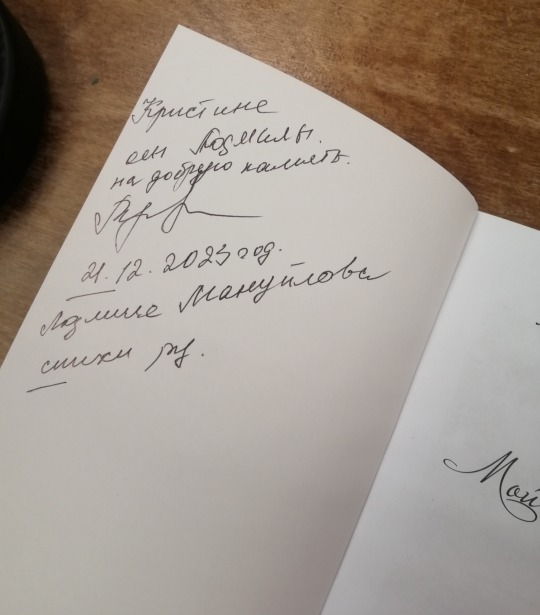 Кристине
от Людмилы.
на добрую память.
21.12.2023 год.
Людмила Мануйлова
стихи ру.
Мой